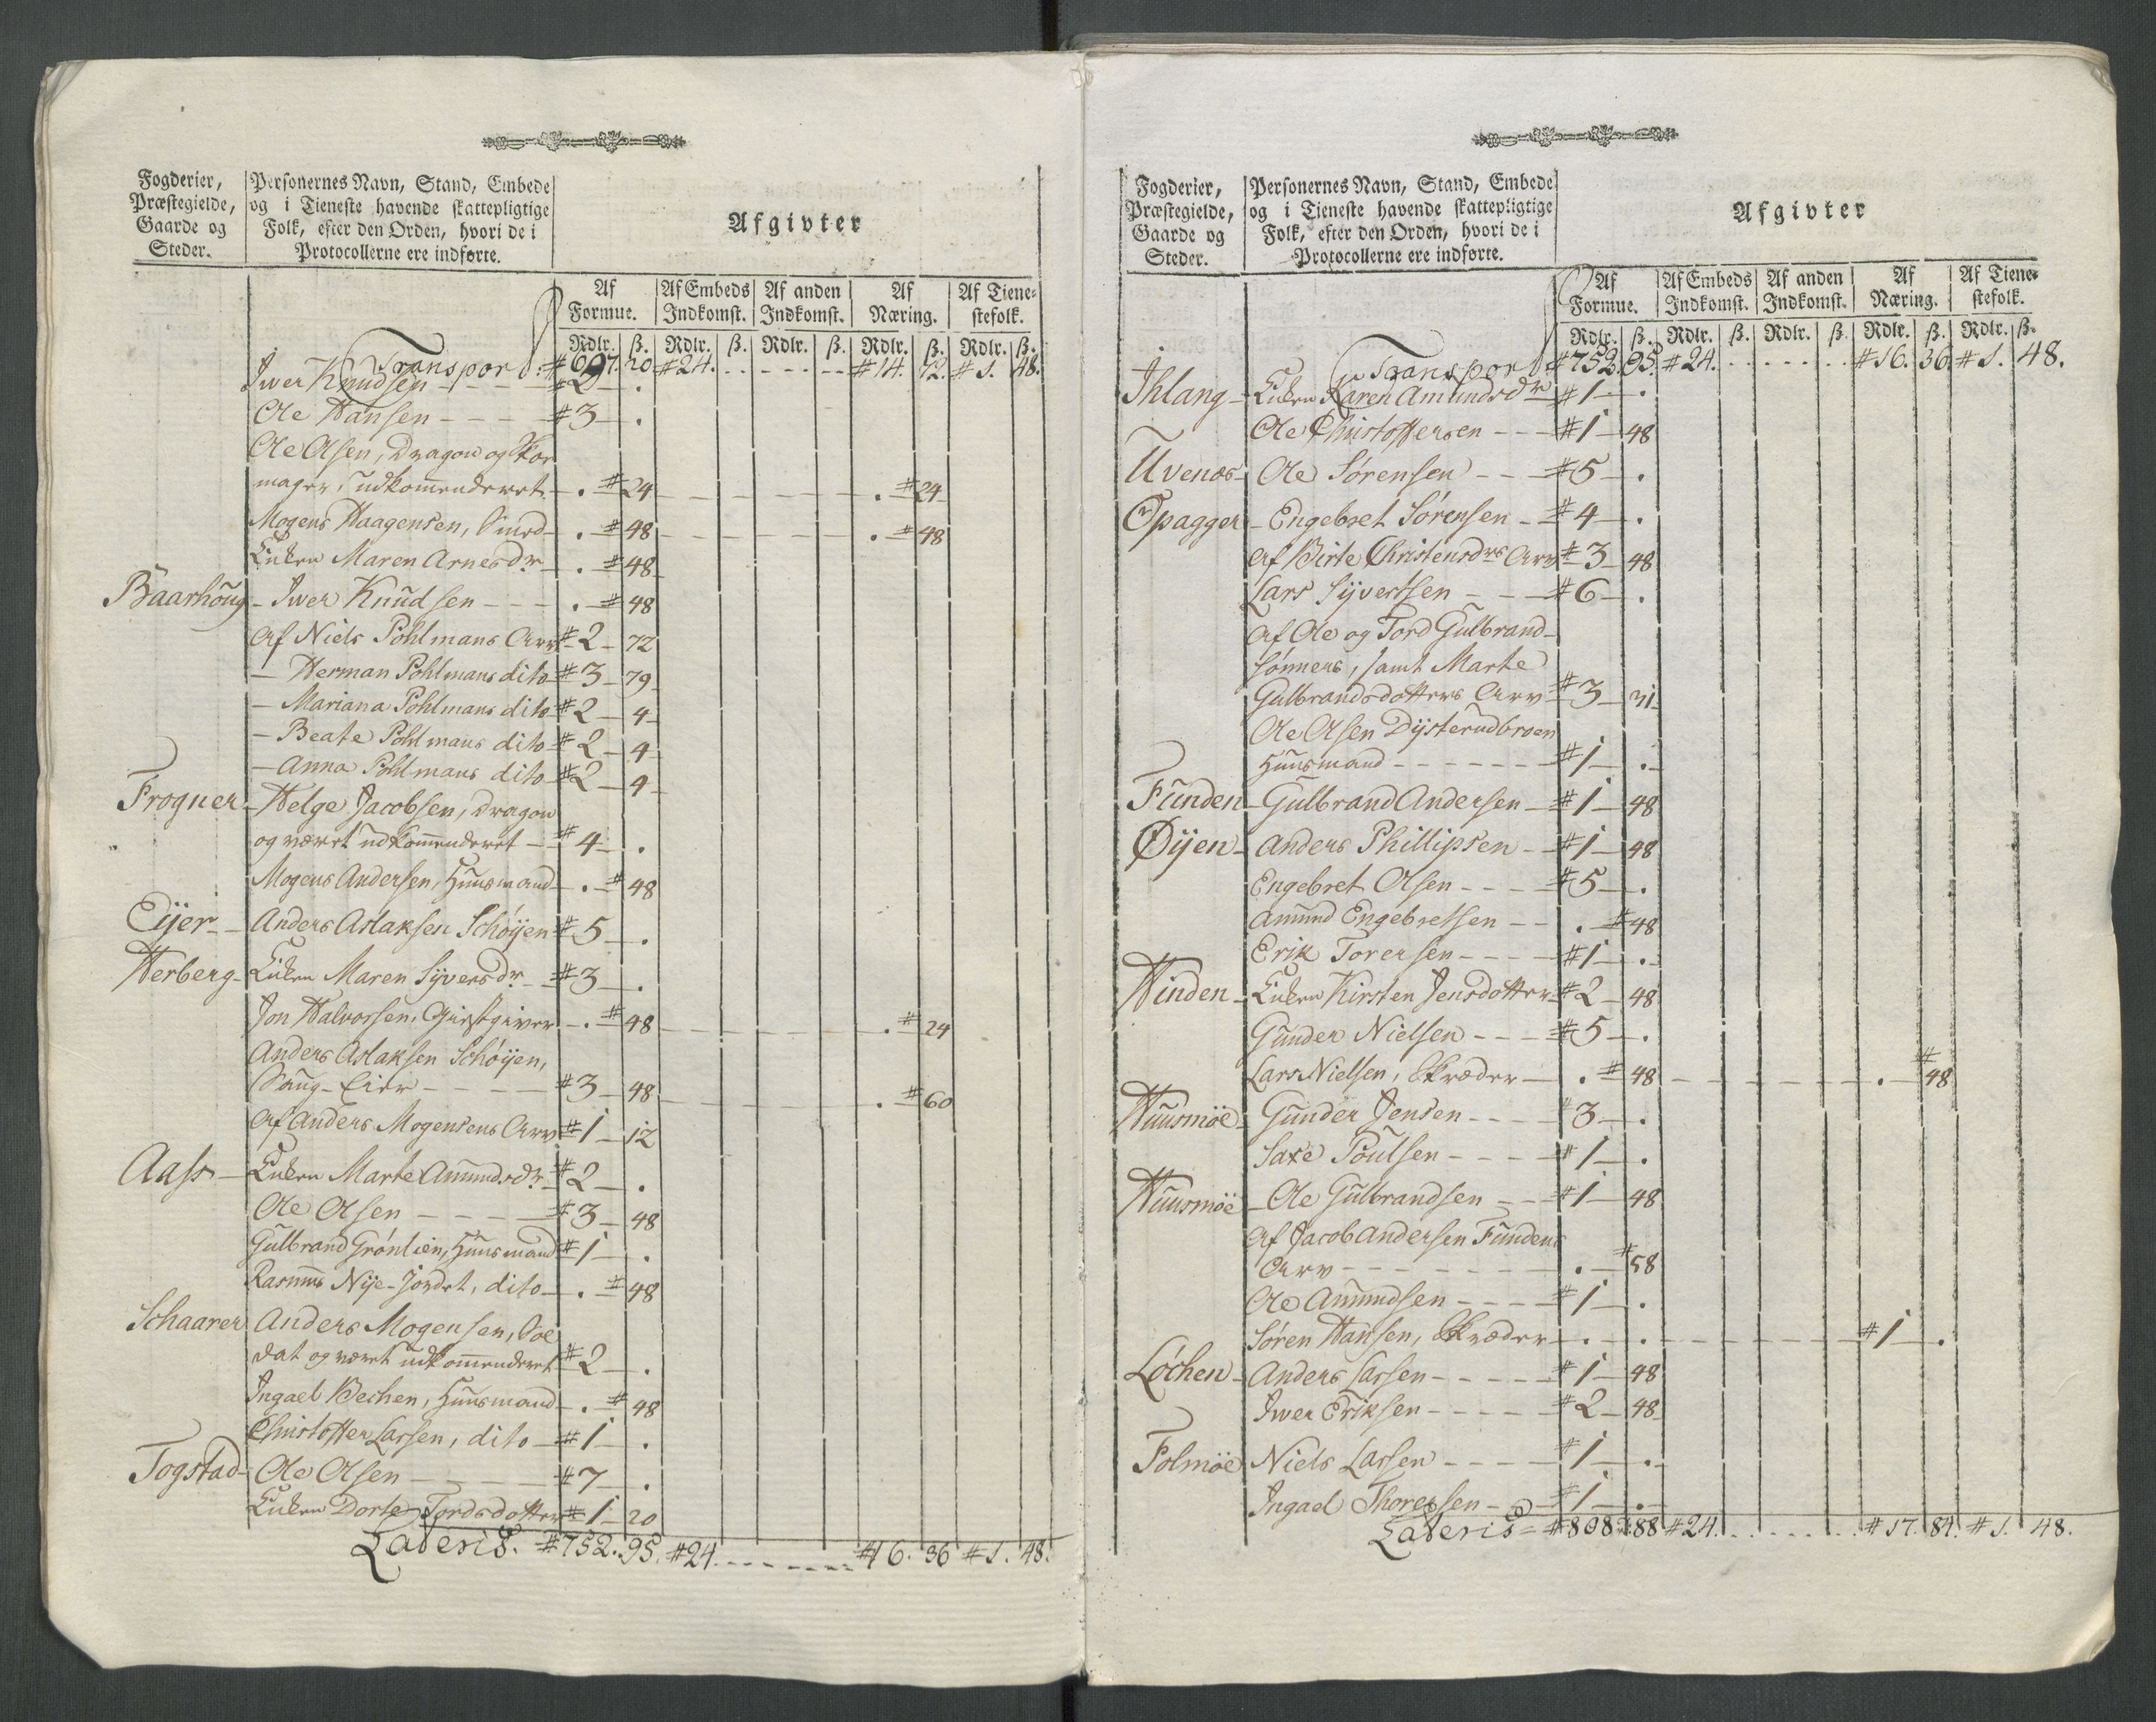 Fogderier,
Præstegielde,
Gaarde og
Steder.
Personernes Navn, Stand, Embede
og i Tieneste havende skattepligtige
Folk, efter den Orden, hvori de i
Protocollerne ere indførte.
Afgivter
Af Formue. Af Embeds Indkomst. Af anden Indkomst. Af Næring. Af Tienestefolk.
Rdlr. ß. Rdlr. ß. Rdlr. ß. Rdlr. ß. Rdlr. ß.
Transport. #697. 20 #24. - - - - - - #14. 72. #1. 48.
Iwer Knudsen - - - #2 - .
Ole Hansen - - - #3 - .
Ole Olsen, Dragon og Skoe
mager, udkom̄enderet - . #24 - - - - - . #24
Mogens Haagensen, Smed - . #48 - - - - - . #48
Enken Maren Arnesdr - . #48
Baarhoug - Iwer Knudsen - - - . #48
Af Niels Pohlmans Arv #2 - 72
- Herman Pohlmans dito #3 - 79
- Mariana Pohlmans dito #2 - 4
- Beate Pohlmans dito #2 - 4
- Anna Pohlmans dito #2 - 4
Frogner - Helge Jacobsen, Dragon
og været udkom̄enderet - #4 - .
Mogens Andersen, Huusmand - . #48
Eijer - Anders Aslaksen Schøyen #5 - .
Herberg - Enken Maren Sijversdr - #3 - .
Jon Halvorsen, Giestgiver - . #48 - - - - . #24
Anders Aslaksen Schøyen,
Saug-Eier - - - #3 - 48 - - - - . #60
Af Anders Mogensens Arv #1 - 12
Aass - Enken Marte Amundsdr #2 - .
Ole Olsen - - - #3 - 48
Gulbrand Grønlien, Huusmand #1 - .
Rasmus Nije-Jordet, dito - . #48
Schaarer Anders Mogensen, Sol
dat og været udkom̄enderet #2 - .
Ingael Bechen, Huusmand - . #48
Christoffer Larsen, dito - #1 - .
Togstad - Ole Olsen - - - #7 - .
Enken Dorte Tordsdotter #1 - 20
Lateris. #752. 95. #24. - - - - - - #16. 36 #1. 48.
Fogderier,
Præstegielde,
Gaarde og
Steder.
Personernes Navn, Stand, Embede
og i Tieneste havende skattepligtige
Folk, efter den Orden, hvori de i
Protocollerne ere indførte.
Afgivter
Af Formue. Af Embeds Indkomst. Af anden Indkomst. Af Næring. Af Tienestefolk.
Rdlr. ß. Rdlr. ß. Rdlr. ß. Rdlr. ß. Rdlr. ß.
Transport #752. 95. #24. - - - - - - #16. 36 #1. 48.
Ihlang - Enken Karen Amundsdr #1 - .
Ole Christoffersen - - #1 - 48
Uvenæs - Ole Sørensen - - #5 - .
Opagger - Engebret Sørensen - #4 - .
Af Birte Christensdrs Arv #3 - 48
Lars Sijvertsen - - #6 - .
Af Ole og Tord Gulbrand-
sønners, samt Marte
Gulbrandsdotters Arv #3 - 31
Ole Olsen Dijsterudbroen
Huusmand - - - - #1 - .
Funden - Gulbrand Andersen - #1 - 48
Øijen - Anders Phillipsen - #1 - 48
Engebret Olsen - - - #5 - .
Amund Engebretsen - - . #48
Erik Torersen - - - #1 - .
Hinden - Enken Kirsten Jensdotter #2 - 48
Gunder Nielsen - - - #5 - .
Lars Nielsen, Skræder - . #48 - - - - . #48
Huusmöe - Gunder Jensen - - - #3 - .
Saxe Poulsen - - - #1 - .
Huusmöe - Ole Gulbrandsen - - #1 - 48
Af Jacob Andersen Fundens
Arv - - - - - . #58
Ole Amundsen - - - #1 - .
Søren Hansen, Skræder - . . - - - - #1 - .
Löchen - Anders Larsen - - - #1 - 48
Iwer Eriksen - - - #2 - 48
Folmöe Niels Larsen - - - #1 - .
Ingael Thoresen - - #1 - .
Lateris #808. 88 #24. - - - - - - #17. 84. #1. 48.